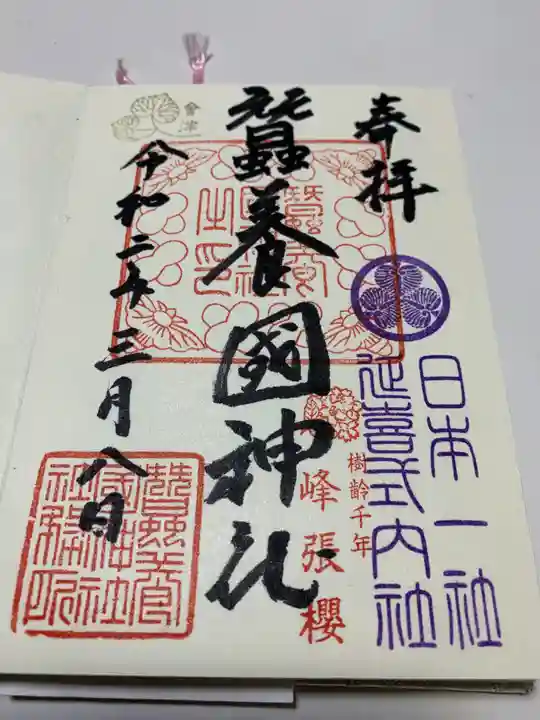 奉拝
日本一社
延喜式内社
樹齢千年
峰張櫻
蠶養國神社
蠶養國神社之印
會津
令和二年三月八日